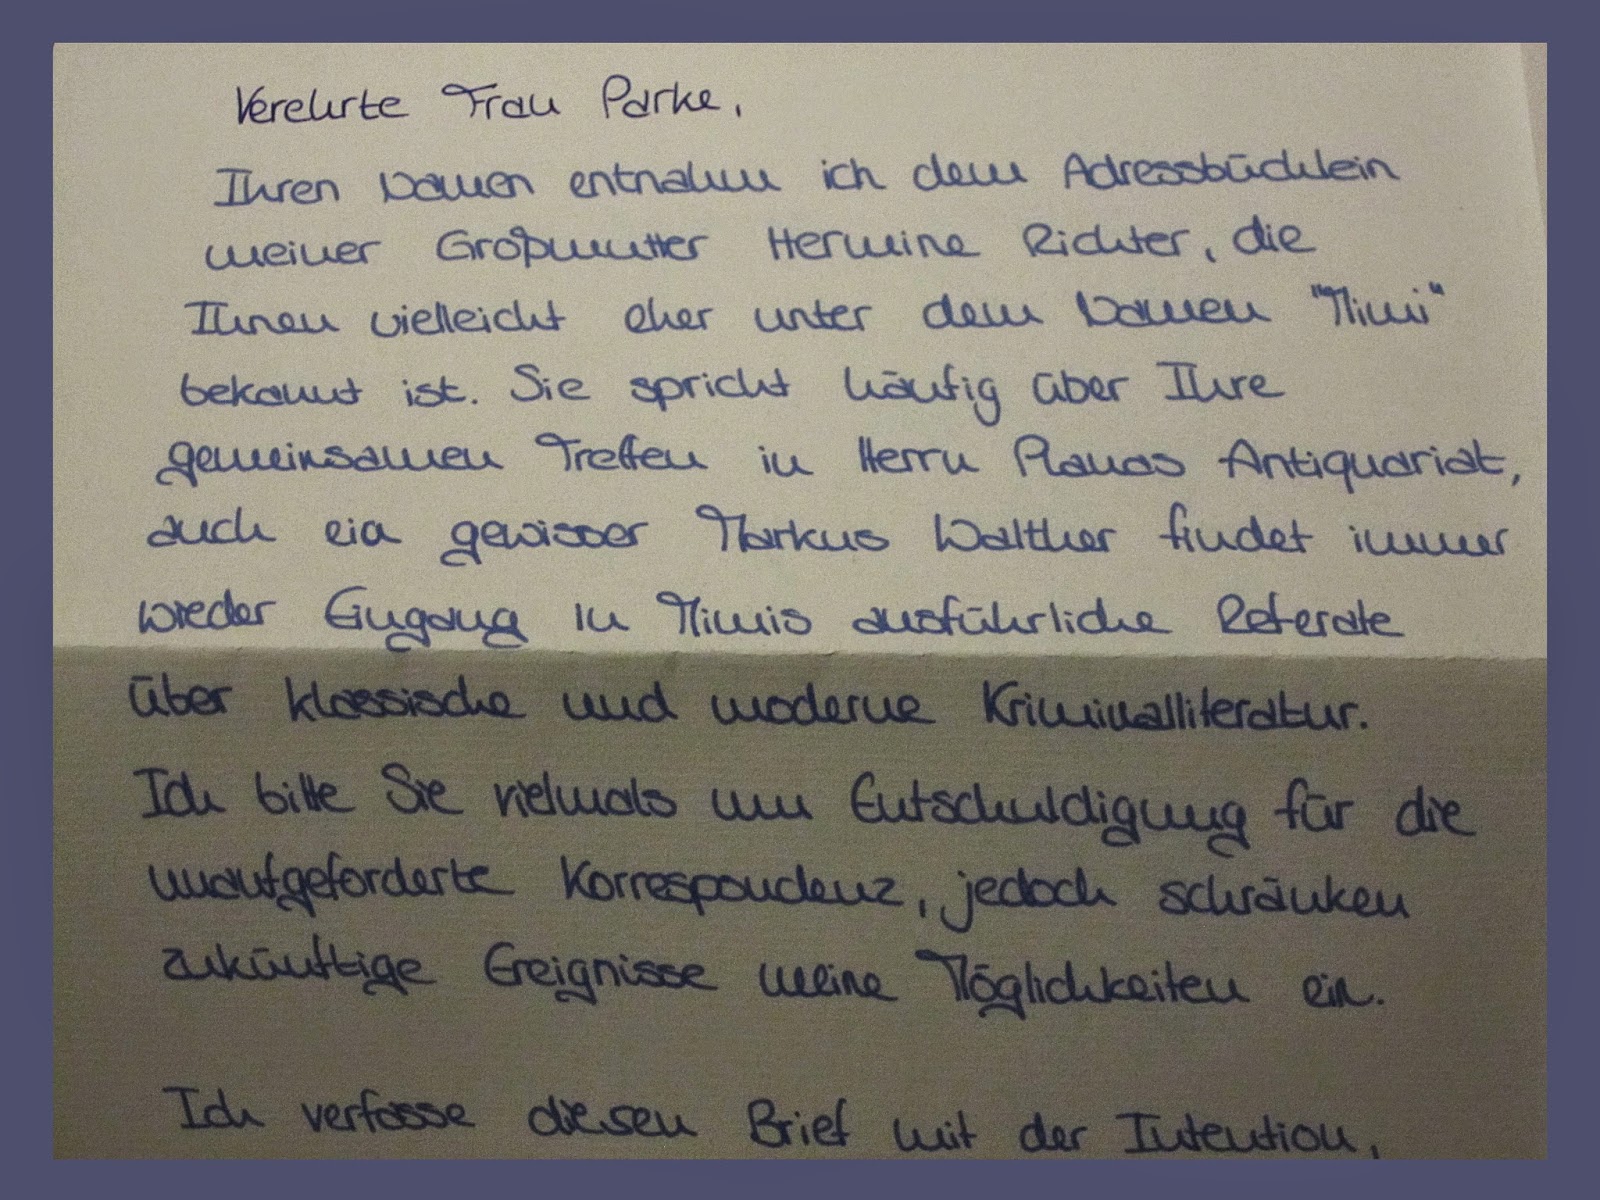 Verehrte Frau Parke,
Ihren Namen entnahm ich dem Adressbüchlein
meiner Großmutter Hermine Richter, die
Ihnen vielleicht eher unter dem Namen "Mimi"
bekannt ist. Sie spricht häufig über Ihre
gemeinsamen Treffen in Herrn Planas Antiquariat,
auch ein gewisser Markus Walther findet immer
wieder Eingang in Mimis ausführliche Referate
über klassische und moderne Kriminalliteratur.
Ich bitte Sie vielmals um Entschuldigung für die
unaufgeforderte Korrespondenz, jedoch schränken
zukünftige Ereignisse meine Möglichkeiten ein.
Ich verfasse diesen Brief mit der Intention,